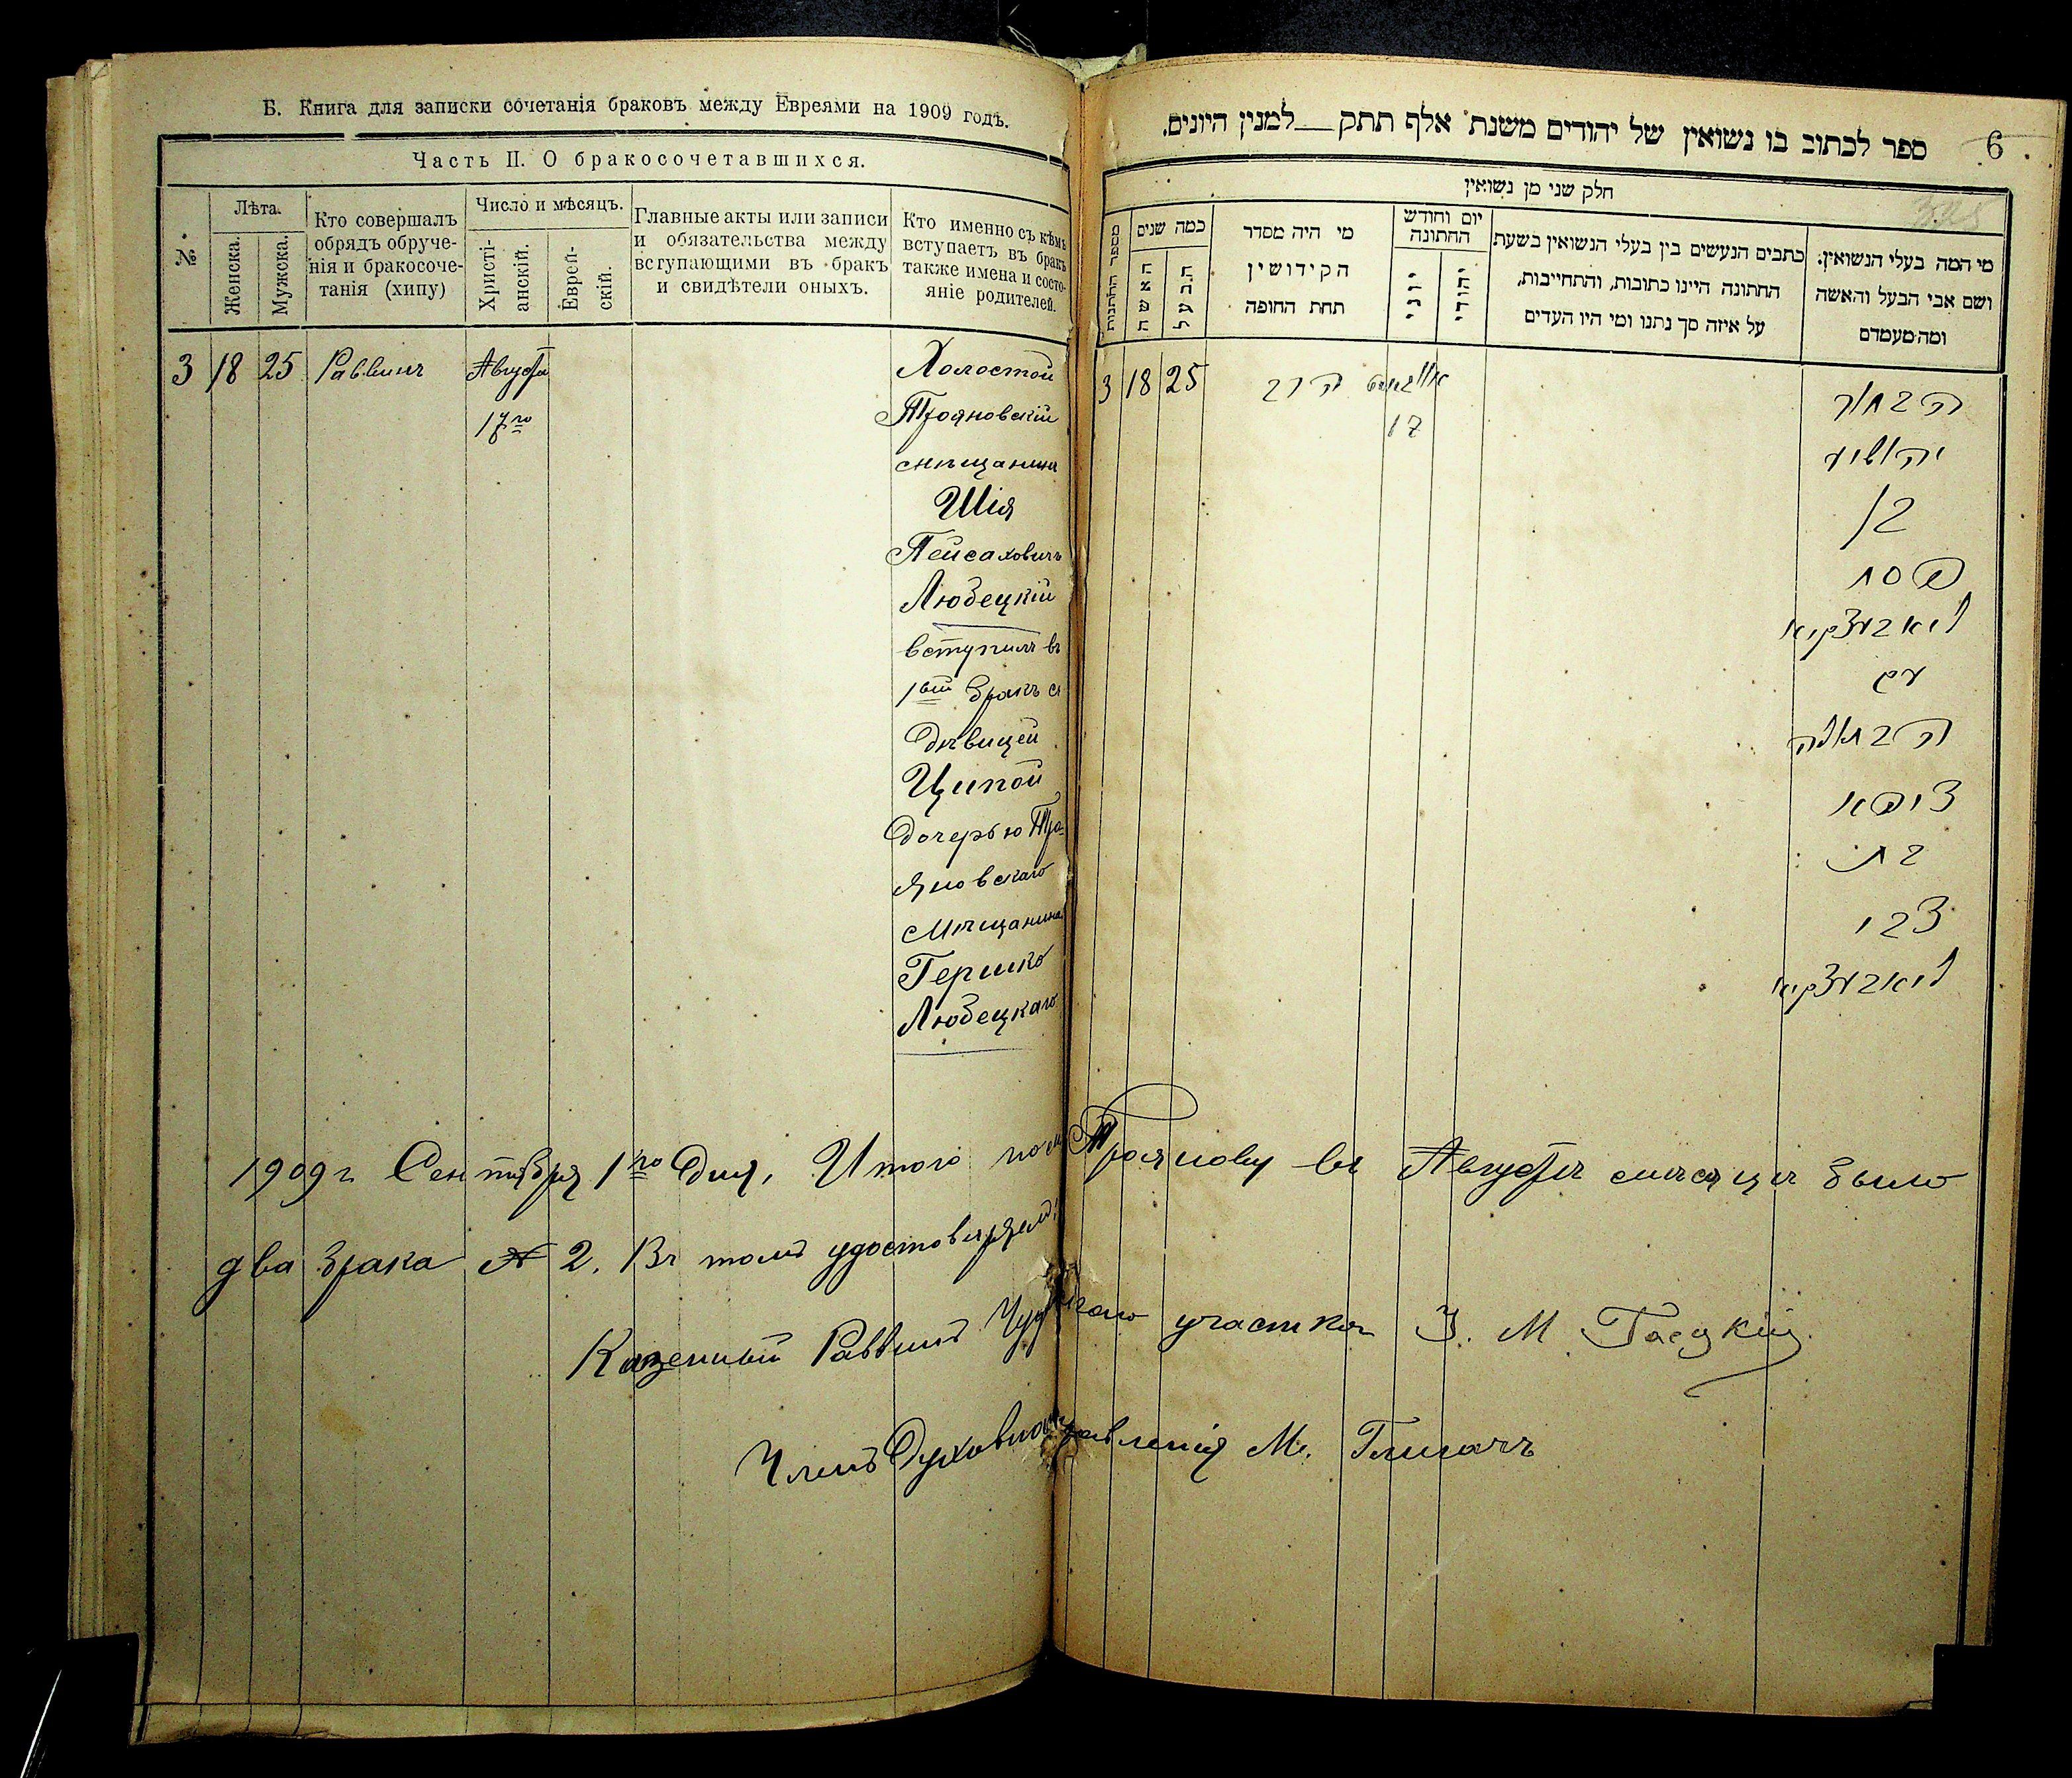 Б. Книга для записки сочетанія браковъ между Евреями на 1909 годъ.
Часть II. О бракосочетавшихся.
№
Лѣта.
Женска.
Мужска.
Кто совершалъ
обрядъ обруче-
нія и бракосоче-
танія (хипу)
Число и мѣсяцъ.
Христі-
анскій.
Еврей-
скій.
Главные акты или записи
и обязательства между
вступающими въ бракъ
и свидѣтели оныхъ.
Кто именно съ кѣмъ
вступаетъ въ бракъ
также имена и состо-
яніе родителей.
3 18 25 Раввинъ Августа
17го
Холостой
Трояновскій
мѣщанинъ
Шія
Пейсаховичъ
Любецкій
вступилъ въ
1вый бракъ съ
дѣвицей
Ципой
дочерью Тро-
яновскаго
мѣщанина
Гершко
Любецкаго
6
ספר לכתוב בו נשואין של יהודים משנת אלף תתק__למנין היונים.
חלק שני מן נשואין
מספר החתונות
כמה שנים
האשה
הבעל
מי היה מסדר
הקידושין
תחת החופה
יום וחודש
החתונה
יוני
יהודי
כתבים הנעשים בין בעלי הנשואין בשעת
החתונה היינו כתובות, והתחייבות,
על איזה סך נתנו ומי היו העדים
מי המה בעלי הנשואין.
ושם אבי הבעל והאשה
ומה מעמדם
3 18 25 הרב אווגוסט
17
הבחור
יהושיע
בן
פסח
ליאבעצקיא
עם
הבתולה
ציפא
בת
צבי
ליאבעצקיא
1909 г. Сентября 1го дня. Итого по м. Троянову въ Августѣ мѣсяцѣ было
два брака № 2. Въ томъ удостовѣряемъ
Казенный Раввинъ участка М
Членъ Духовнаго Правленія М.